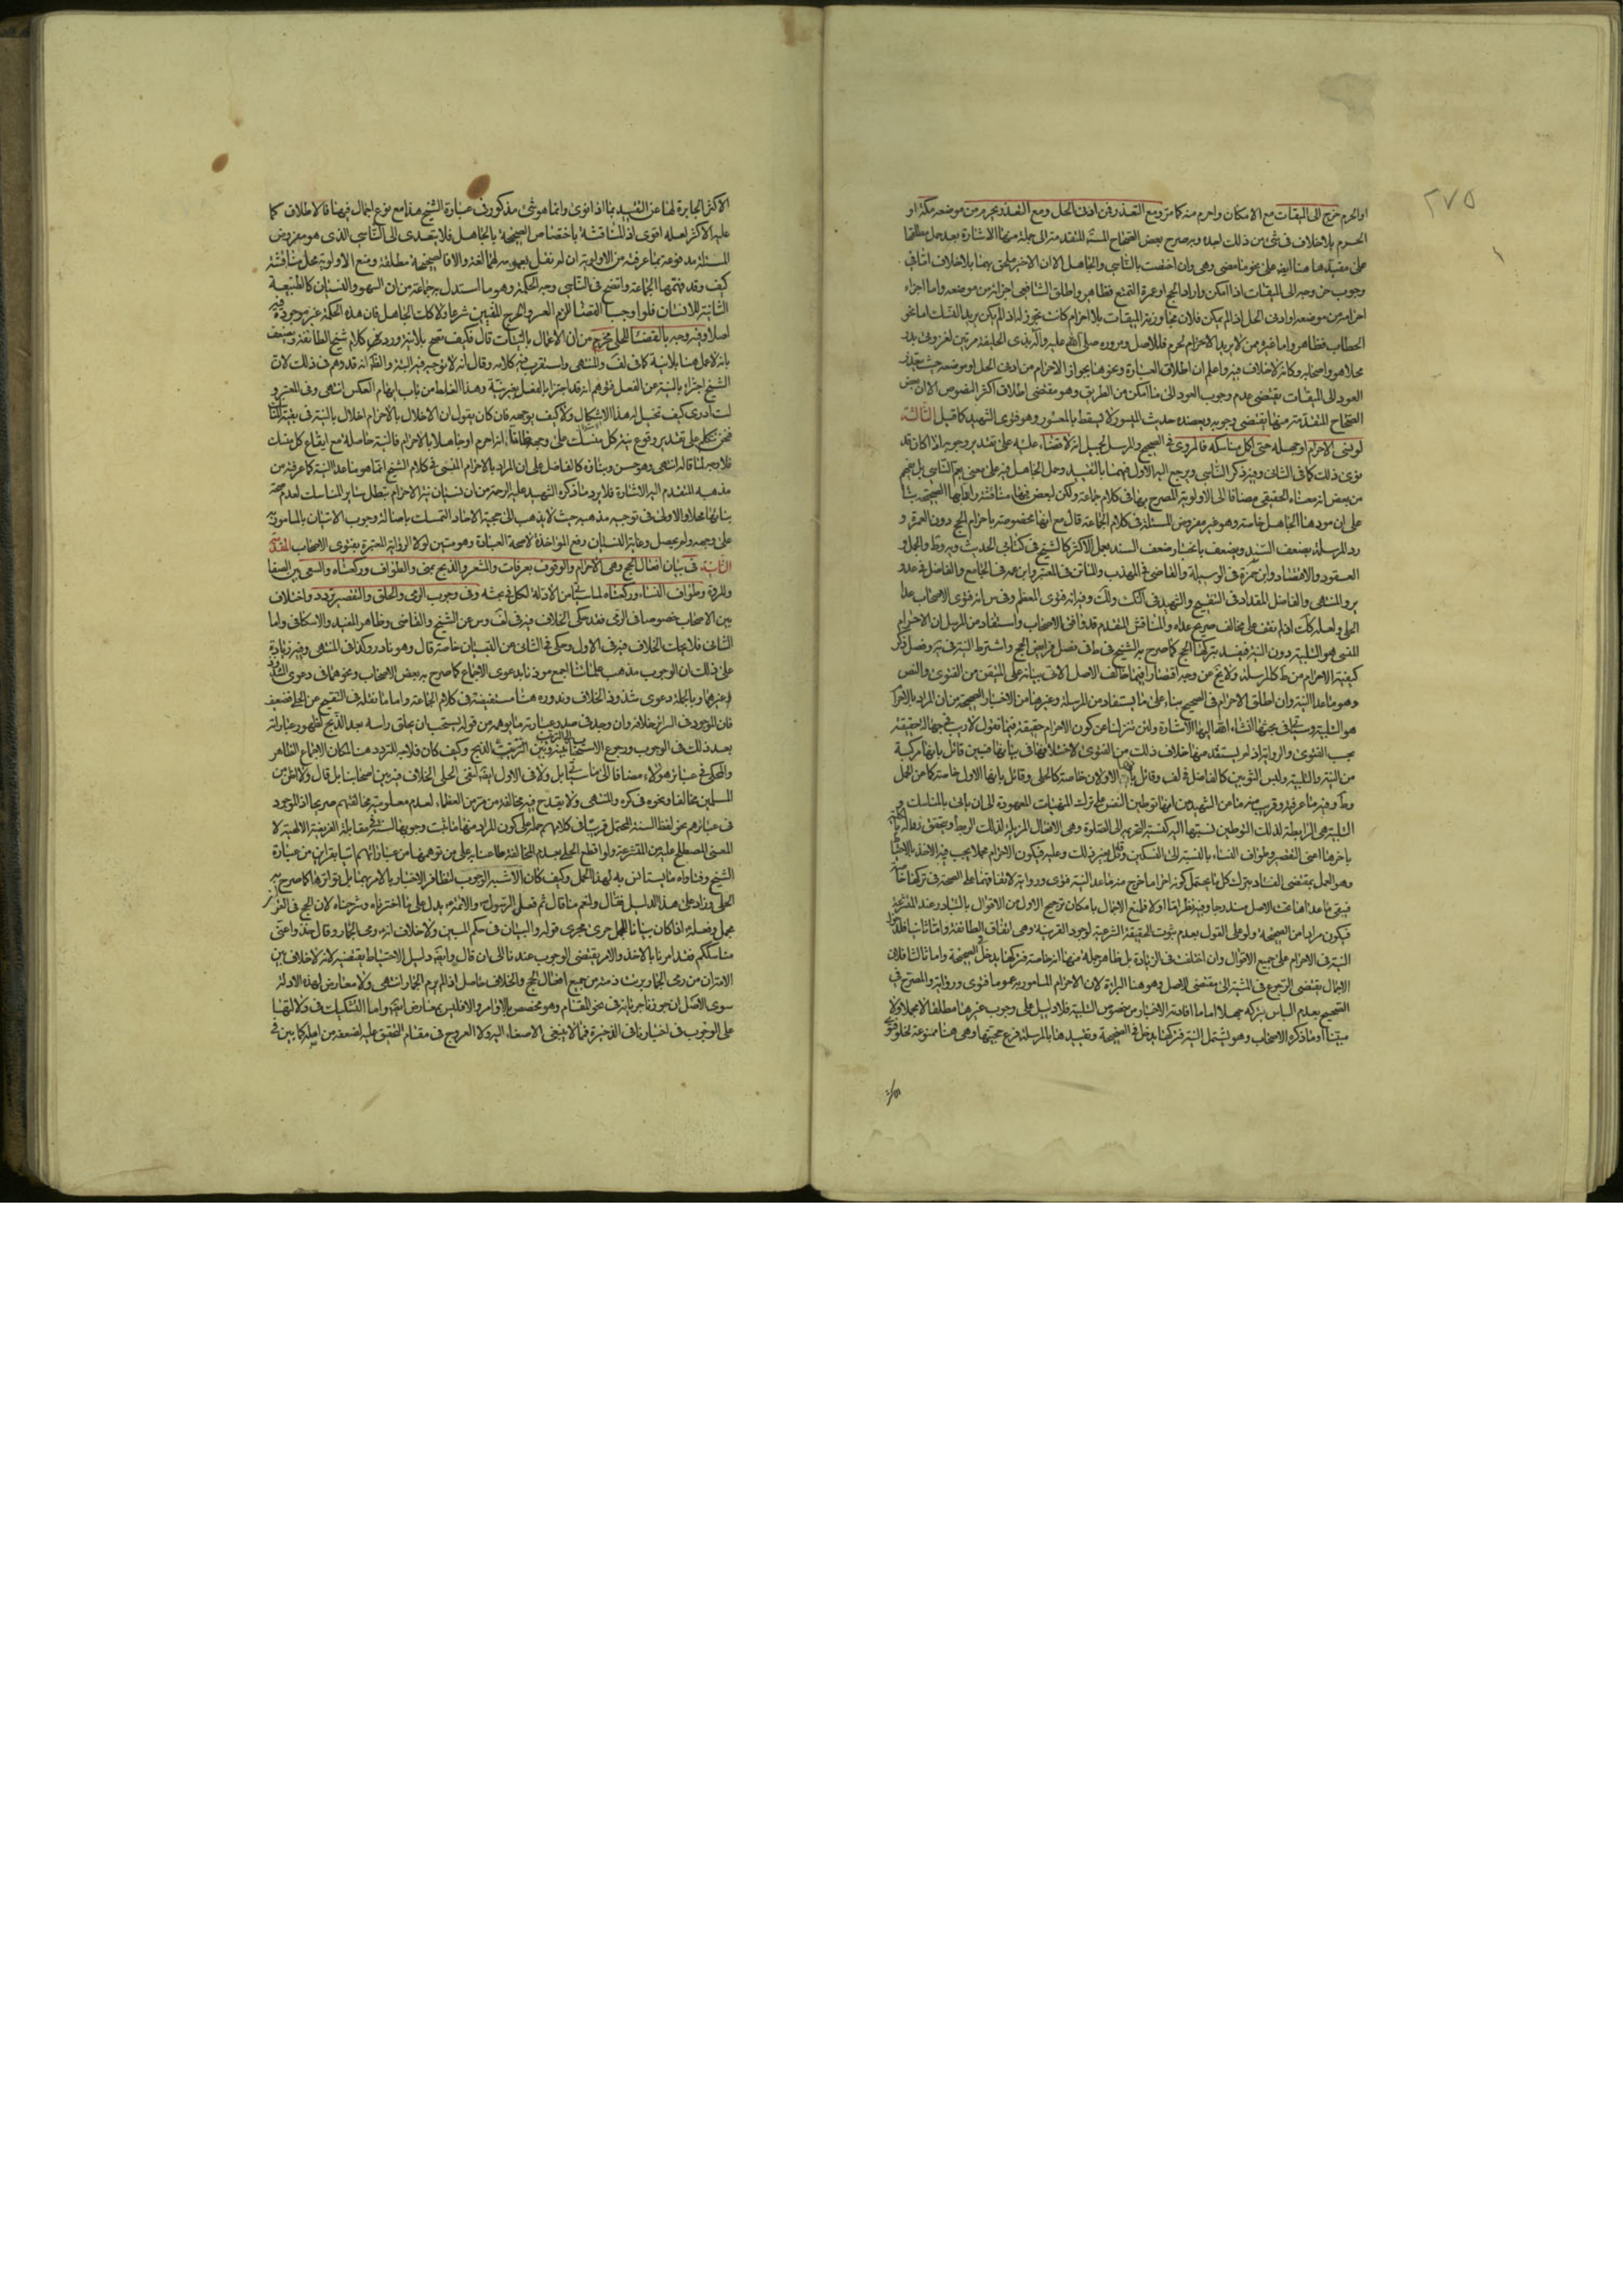 ٢٧٥
او الحرم خرج الى الميقات مع الامكان واحرم منه كما مر ومع التعذر فمن ادنى الحل ومع التعذر يحرم من موضعه مكة او
الحرم بلا خلاف في شئ من ذلك اجده وبه صرح بعض الصحاح المستفيضة المتقدمة الى جملة منها الاشارة بعد حمل مطلقها
على مقيدها هنا ايضا على نحو ما مضى وهى وان اختصت بالناسي والجاهل الا ان الاخير ملحق بهما بلا خلاف اما في
وجوب خروجه الى الميقات اذا امكن واراد الحج او عمرة التمتع فظاهر واطلق الشافعي احرامه من موضعه واما اجزاء
احرامه من موضعه او ادنى الحل اذا لم يمكن فلان تجاوزه الميقات بلا احرام كانت بتجوز له اذ لم يكن يريد النسك اما نحو
الحطاب فظاهر واما غيره ممن لا يريد الاحرام لحرم فللاصل ومروره صلى الله عليه وآله بذى الحليفة مرتين لغزوتى بدر
محلا هو واصحابه وكانه لا خلاف فيه واعلم ان اطلاق العبارة ونحوها بجواز الاحرام من ادنى الحل او موضعه حيث يتعذر
العود الى الميقات يقتضى عدم وجوب العود الى ما امكن من الطريق وهو مقتضى اطلاق اكثر النصوص الا ان بعض
الصحاح المتقدمة منها يقتضى وجوبه ويعضده حديث الميسور لا يسقط بالمعسور وهو فتوى الشهيد كما قيل الثالثة
لو نسى الاحرام او جهله حتى اكمل مناسكه فالمروى في الصحيح والمرسل كجميل انه لا قضاء عليه على تقدير وجوبه اذا كان قد
نوى ذلك كما في الثاني وفيه ذكر الناسي ويرجع اليه الاول فيهما بالتقييد وحمل الجاهل فيه على معنى يعم الناسي بل يفهم
من بعض انه معناه الحقيقي مضافا الى الاولوية المصرح بها في كلام جماعة ولكن لبعض فيها مناقشة
على ان موردها الجاهل خاصة وهو غير مفروض المسئلة في كلام الجماعة قال مع انها مخصوصة باحرام الحج دون العمرة و
رد المرسلة بضعف السند ويضعف بانجبار ضعف السند بعمل الاكثر كالشيخ في كتابي الحديث ويه وط والجمل و
العقود والاقتصاد وابن حمزة في الوسيلة والقاضي في المهذب والماتن في المعتبر وابن عمه في الجامع والفاضل في عد و
ير والمنتهى والفاضل المقداد في التنقيح والشهيد في النكت ولك وفيه انه فتوى المعظم وفى س انه فتوى الاصحاب عدا
الحلي ولعله كك اذ لم نقف على مخالف صريح عداه والمناقش المتقدم قد وافق الاصحاب واستفاد من المرسل ان الاحرام
المنسى هو التلبية دون النية فيفسد بتركها الحج كما صرح به الشيخ في ط في فصل فرايض الحج واشترط النية فيه وفصل ذكر
كيفية الاحرام من ط كالمرسلة ولا يخ عن وجه اقتصارا فيما خالف الاصل الاتي بيانه على المتيقن من الفتوى والنص
وهو ما عدا النية وان اطلق الاحرام في الصحيح بناء على ما يستفاد من المرسلة وغيرها من الاخبار الصحيحة من ان المراد بالاحرام
هو التلبية وسيأتي في بحثها انشاء الله اليها الاشارة ولئن تنزلنا عن كون الاحرام حقيقة فيها نقول لا ريب في جهالة حقيقته
بحسب الفتوى والرواية اذ لم يستفد منها خلاف ذلك من الفتوى لاختلافها في بيانها فبين قائل بانها مركبة
من النية والتلبية ولبس الثوبين كالفاضل في لف وقائل بانها الاولان خاصة كالحلي وقائل بانها الاول خاصة كما عن الجمل
وط وفيه ما عرفته وقريب منه ما عن الشهيد من انها توطين النفس على ترك المنهيات المعهودة الى ان ياتى بالمناسك و
التلبية هى الرابطة لذلك التوطين نسبتها اليه كنسبة التحريمة الى الصلوة وهى الافعال المزيلة لذلك الربط ويتحقق زواله
باخرها اعنى التقصير وطواف النساء بالنسبة الى النسكين وقيل غير ذلك وعليه فيكون الاحرام مجملا يجب فيه الاخذ بالاحتياط
وهو العمل بمقتضى الفساد بترك كل ما يحتمل كونه احراما خرج منه ما عدا النية فتوى ورواية لاتفاقهما على الصحة في تركها خاصة
فيبقى ما عداها تحت الاصل مندرجا وفيه نظر اما اولا فلمنع الاجمال بامكان ترجيح الاول من الاقوال بالتبادر عند المتشرعة
فيكون مرادا من الصحيحة ولو على القول بعدم ثبوت الحقيقة الشرعية لوجود القرينة وهى اتفاق الطائفة واما ثانيا فلدخول
النية في الاحرام على جميع الاقوال وان اختلفت في الزيادة بل ظاهر جملة منها انه خاصة فتركها يدخل في الصحيحة واما ثالثا فلان
الاجمال يقتضى الرجوع في المشتبه الى مقتضى الاصل وهو هنا البرائة لان الاحرام المامور به عموما فتوى ورواية والمصرح في
الصحيح بعدم الباس بتركه جهلا اما ما افادته الاخبار من خصوص التلبية فلا دليل على وجوب غيرها مطلقا لا مجملا ولا
مبينا او ما ذكره الاصحاب وهو يشمل النية فتركها يدخل في الصحيحة وتقييدها بالمرسلة فرع حجيتها وهى هنا ممنوعة لخلو فتوى
الاكثر الجابرة لها عن التقييد بها اذا نوى وانما هو شئ مذكور في عبارة الشيخ هذا مع نوع اجمال فيها فالاطلاق كما
عليه الاكثر لعله اقوى اذ المناقشة باختصاص الصحيحة بالجاهل فلا يتعدى الى الناسي الذى هو مفروض
المسئلة مدفوعة بما عرفته من الاولوية ان لم نقل بعمومه لهما لغة والا فالصحيحة مطلقة ومنع الاولوية محل مناقشة
كيف وقد فهمها الجماعة واتضح في الناسي وجه الحكمة وهو ما استدل به جماعة من ان السهو والنسيان كالطبيعة
الثانية للانسان فلو اوجبا القضاء لزم العسر والحرج المنفيين شرعا ولا كك الجاهل فان هذه الحكمة غير موجودة فيه
اصلا وفيه وجه بالقضاء للحلي مخرج من ان الاعمال بالنيات قال فكيف تصح بلا نية ورده في كلام شيخ الطائفة ويضعف
بانه لا عمل هنا بلا نية كما في لف والمنتهى واستقرب فيه كلامه وقال انه لا توجيه فيه البتة والظ انه قد وهم في ذلك لان
الشيخ اجتزاء بالنية عن الفعل فتوهم انه قد اجتزاء بالفعل بغير نية وهذا الغلط من باب ايهام العكس انتهى وفى المعتبر و
لست ادرى كيف تخيل له هذا الاشكال ولا كيف يوجهه فان كان يقول ان الاخلال بالاحرام اخلال بالنية في بقية المناسك
فنحن نتكلم على تقدير وقوع نية كل منسك على وجهه ظانا انه احرم او جاهلا بالاحرام فالنية حاصلة مع ايقاع كل منسك
فلا وجه لما قاله انتهى وهو حسن وبناؤه كالفاضل على ان المراد بالاحرام المنسى في كلام الشيخ انما هو ما عدا النية كما عرفته من
مذهبه المتقدم اليه الاشارة فلا يرد ما ذكره الشهيد عليه الرحمة من ان نسيان نية الاحرام يبطل سائر المناسك لعدم صحة
بنائها محلا والاولى في توجيه مذهبه حيث لا يذهب الى حجية الاحاد التمسك باصالة وجوب الاتيان بالمامور به
على وجهه ولم يحصل وغاية النسيان رفع المؤاخذة لا صحة العبادة وهو متين لولا الرواية المعتبرة بفتوى الاصحاب المقدمة
الثانية في بيان افعال الحج وهى الاحرام والوقوف بعرفات والمشعر والذبح بمنى والطواف وركعتاه والسعى بين الصفا
والمروة وطواف النساء وركعتاه لما سيأتي من الادلة لكل في بحثه وفى وجوب الرمى والحلق والتقصير تردد واختلاف
بين الاصحاب خصوصا في الرمى فقد حكى الخلاف فيه في لف وس عن الشيخ والقاضي وظاهر المفيد والاسكافي واما
الثاني فلا يجات الخلاف فيه في الاول وحكى في الثاني عن التبيان خاصة قال وهو نادر وكذا في المنتهى وفيه زيادة
على ذلك ان الوجوب مذهب علمائنا اجمع مؤذنا بدعوى الاجماع كما صرح به بعض الاصحاب ونحوهما في دعوى الشذوذ
وغيرهما وبالجملة دعوى شذوذ الخلاف وندوره هنا مستفيضة في كلام الجماعة واما ما نقله في التنقيح عن الحلي فضعيف
فان الموجود في السرائر خلافه وان وجد في صدر عبارته ما يوهمه من قوله يستحب ان يحلق راسه بعد الذبح لظهور عبارته
بعد ذلك في الوجوب ورجوع الاستحباب الى الترتيب بينه وبين الذبح وكيف كان فلا وجه للتردد هنا لمكان الاجماع الظاهر
والمحكى في عبائر هؤلاء مضافا الى ما سيأتي بل ولا في الاول ايضا لنفى الحلي الخلاف فيه بين اصحابنا بل قال ولا اظن من
المسلمين مخالفا ونحوه في كره والمنتهى ولا يقدح فيه مخالفة من مر من العظماء لعدم معلومية مخالفتهم صريحا اذ الموجود
في عبائرهم نحو لفظ السنة المحتمل قريبا في كلامهم حمله على كون المراد منها ما ثبت وجوبها بالسنة في مقابلة الفريضة الالهية لا
المعنى المصطلح عليه بين المتشرعة ولو اقطع الحلي بعدم المخالفة طاعنا به على من توهمها من عباراتهم اتيا بقراين من عبارة
الشيخ وفتاواه ما يستانس به لهذا الحمل وكيف كان الاشبه الوجوب لتظافر الاخبار بالامر بهما بل تواترها كما صرح به
الحلي وزاد على هذا الدليل فقال ولنعم ما قال ثم فعل الرسول والائمة يدل على ما اخترناه وشرحناه لان الحج في القران
مجمل وفعله اذا كان بيانا للمجمل جرى مجرى قوله والبيان في حكم المبين ولا خلاف انه رمى الجمار وقال خذوا عنى
مناسككم فقد امرنا بالاخذ والامر يقتضى الوجوب عندنا الى ان قال وايضا دليل الاحتياط يقتضيه لانه لا خلاف بين
الامة ان من رمى الجمار برئت ذمته من جميع افعال الحج والخلاف حاصل اذا لم يرم الجمار انتهى ولا معارض لهذه الادلة
سوى الاصل ان جوزنا جريانه في نحو المقام وهو مخصص بالاوامر والاقلين معارض ايضا واما التشكيك في دلالتها
على الوجوب في اخبارنا في الذخيرة فمما لا ينبغى الاصغاء اليه ولا العروج في مقام التحقيق عليه لضعفه من اصله كما بين في